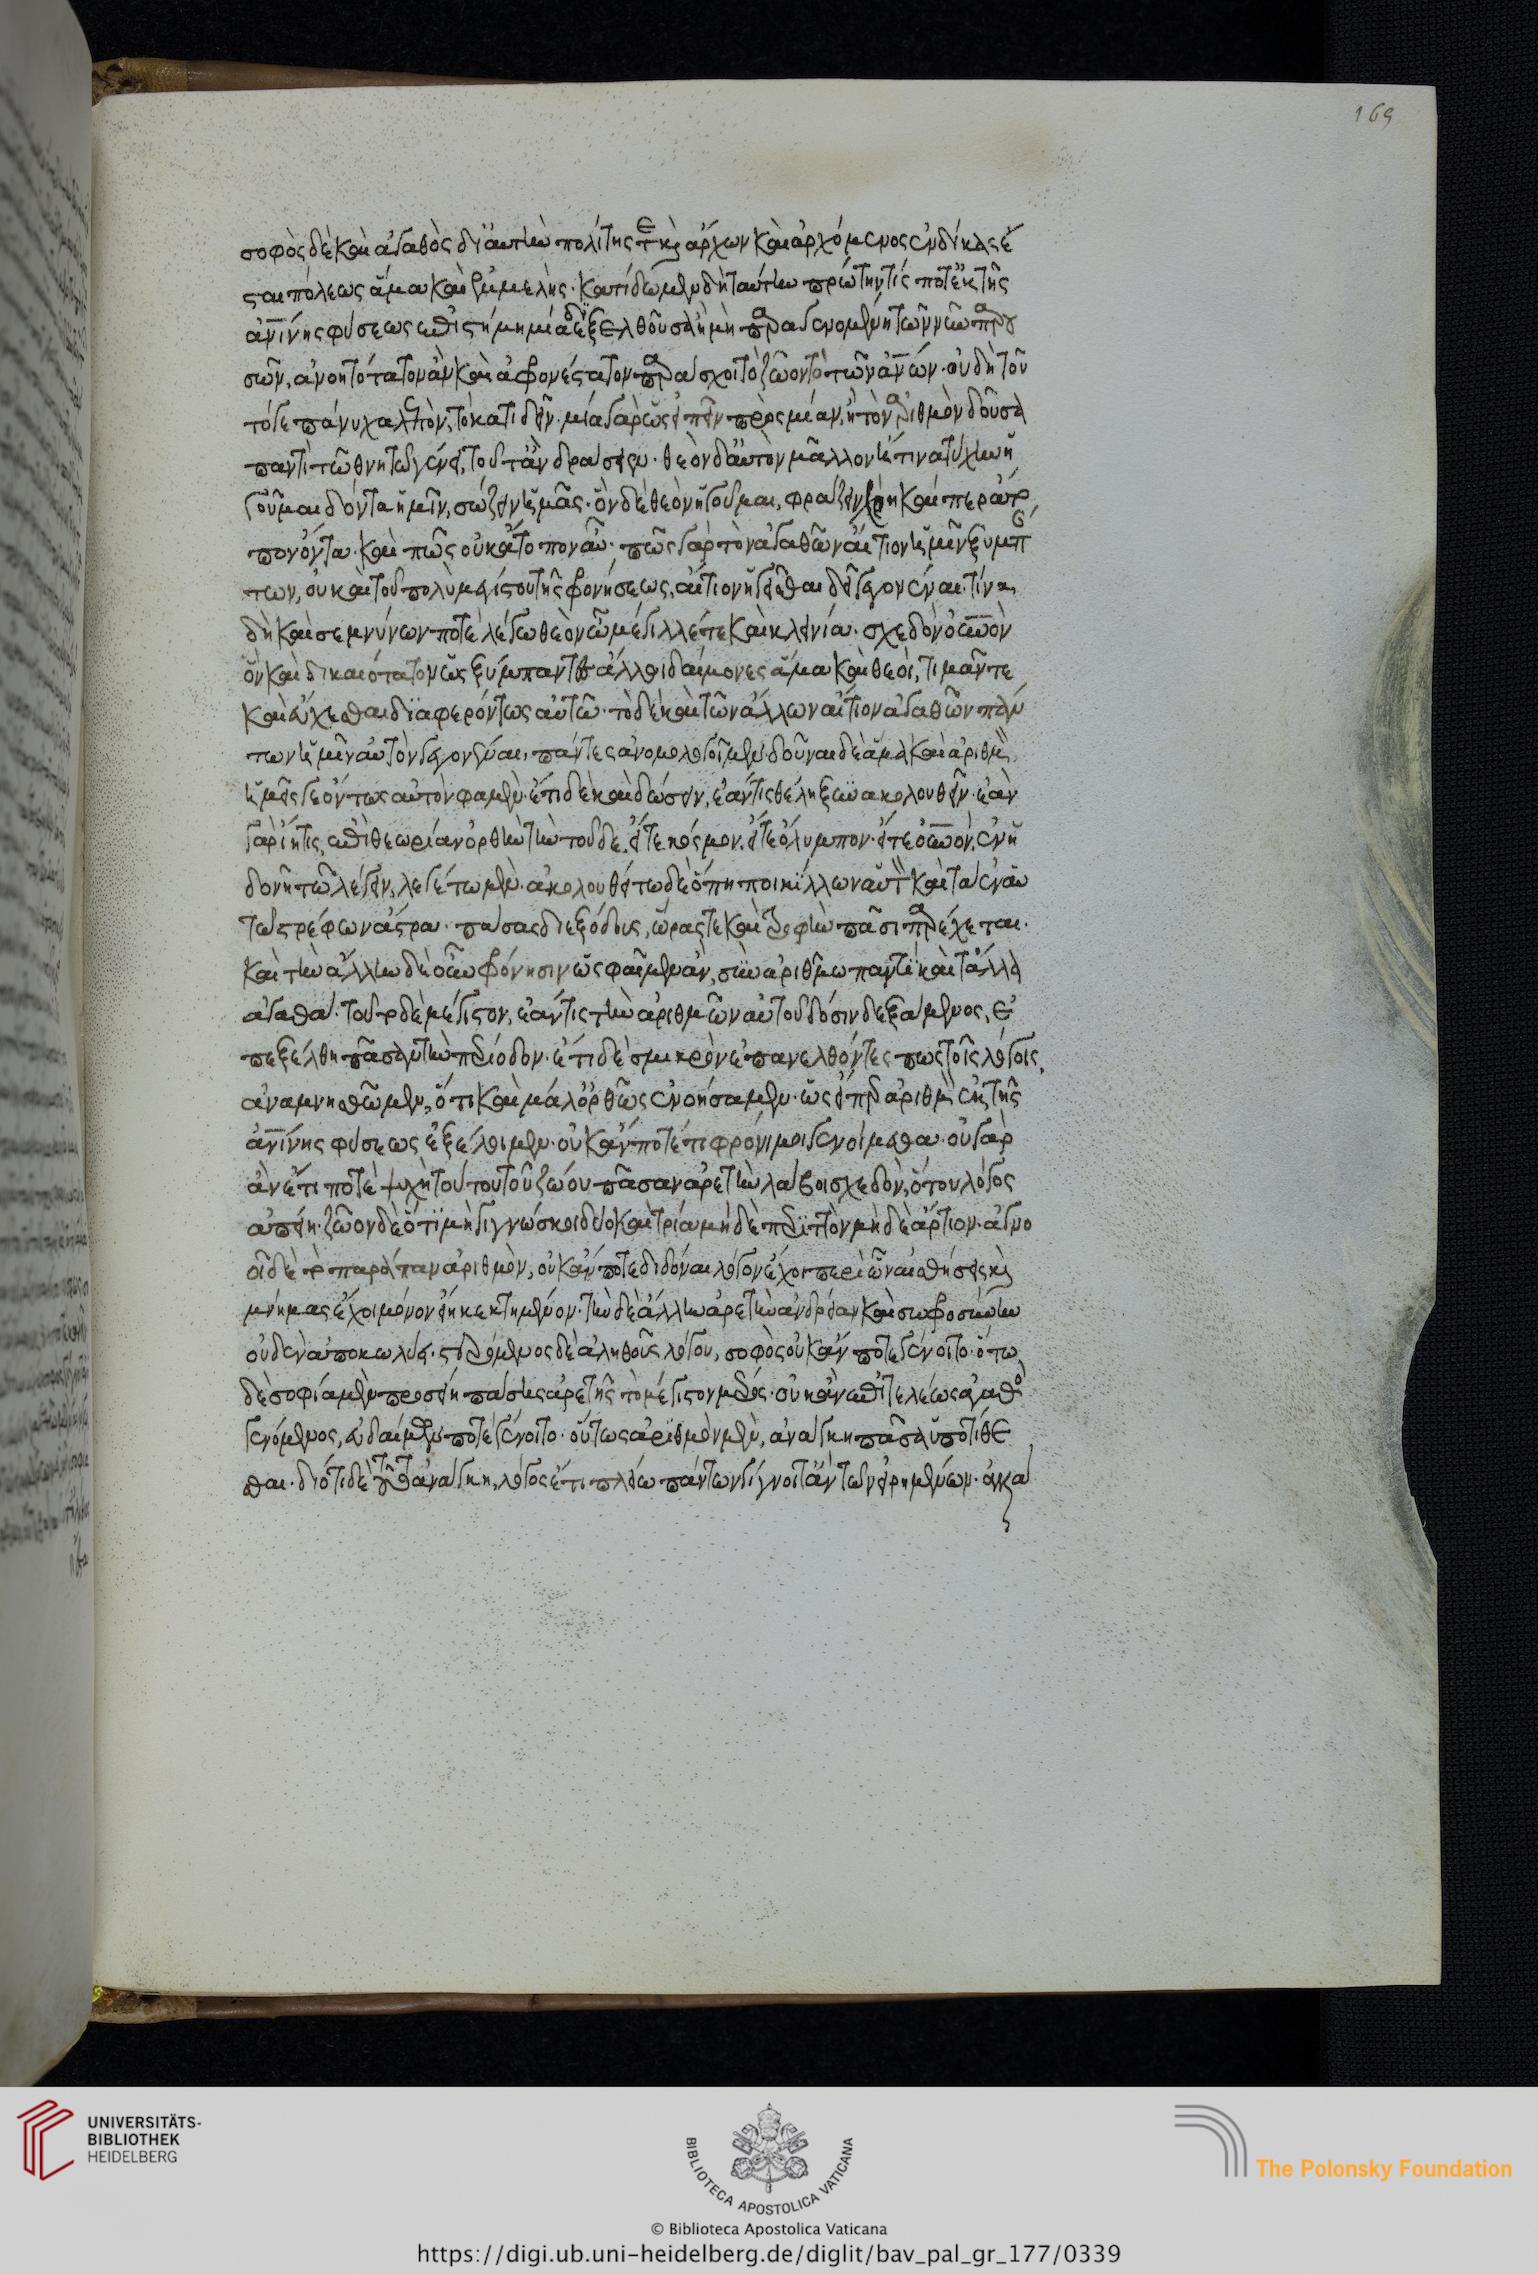 σοφὸς δὲ καὶ ἀγαθὸς δι' αὐτὴν πολίτης τε καὶ ἄρχων καὶ ἀρχόμενος ἐνδίκως ἔ
σται πόλεως ἅμα καὶ ἐμμελής· κατίδωμεν δὴ ταύτην πρώτην τίς ποτ' ἐκ τῆς
ἀνίνης φύσεως ἐπιστήμη μία διεξελθοῦσα ἢ μὴ παραγενομένη τῶν νῦν παρου
σῶν, ἀνοητότατον ἂν καὶ ἀφρονέστατον παράσχοιτο ζῶον τὸ τῶν ἀνων· οὐ δὴ τοῦ
τό γε πάνυ χαλεπὸν, τὸ κατιδεῖν· μία γὰρ ὡς εἰπεῖν πρὸς μίαν, ἡ τὸν ἀριθμὸν δοῦσα
παντὶ τῶ θνητῶ γένει, τοῦτ' ἂν δράσειεν· θεὸν δ' αὐτὸν μᾶλλον ἤ τινα τύχην ἡ
γοῦμαι δόντα ἡμῖν, σώζειν ἡμᾶς· ὃν δὲ θεὸν ἡγοῦμαι, φράζειν χρὴ καίπερ ἄτο
πον ὄντα· καὶ πῶς οὐκ ἄτοπον αὖ· πῶς γὰρ τὸν ἀγαθῶν αἴτιον ἡμῖν ξυμπάν
των, οὐ καὶ τοῦ πολὺ μεγίστου τῆς φρονήσεως, αἴτιον ἡγεῖσθαι δεῖ γεγονέναι· τίνα
δὴ καὶ σεμνύνων ποτὲ λέγω θεὸν ὦ μέγιλλέ τε καὶ κλεινία· σχεδὸν οὐνον
ὃν καὶ δικαιότατον ὡς ξύμπαντες ἄλλοι δαίμονες ἅμα καὶ θεοὶ, τιμᾶν τε
καὶ εὔχεσθαι διαφερόντως αὐτῶ· τὸ δὲ καὶ τῶν ἄλλων αἴτιον ἀγαθῶν πάν
των ἡμῖν αὐτὸν γεγονέναι, πάντες ἂν ὁμολογοῖμεν· δοῦναι δὲ ἅμα καὶ ἀριθμὸν
ἡμεῖς γε ὄντως αὐτὸν φαμὲν· ἔτι δὲ καὶ δώσειν, ἐάν τις θέλη ξυνακολουθεῖν· ἐὰν
γὰρ ἴη τις ἐπὶ θεωρίαν ὀρθὴν τὴν τοῦδε, εἴτε κόσμον, εἴτε ὄλυμπον· εἴτε οὐνον, ἐν ἡ
δονῆ τῶ λέγειν, λεγέτω μὲν· ἀκολουθείτω δὲ ὅπη ποικίλλων αὐτὸν καὶ τὰ ἐν αὐ
τῶ στρέφων ἄστρα· πάσας διεξόδους, ὥρας τε καὶ τροφὴν πᾶσι παρέχεται·
καὶ τὴν ἄλλην δὲ οὖν φρόνησιν ὡς φαῖμεν ἂν, σὺν ἀριθμῶ παντὶ καὶ τἄλλα
ἀγαθά· τοῦτο δὲ μέγιστον, ἐάν τις τὴν ἀριθμῶν αὐτοῦ δόσιν δεξάμενος, ἐ
πεξέλθη πᾶσαν τὴν περίοδον· ἔτι δὲ σμικρὸν ἐπανελθόντες πως τοῖς λόγοις,
ἀναμνησθῶμεν, ὅτι καὶ μάλ' ὀρθῶς ἐνοήσαμεν· ὡς εἴπερ ἀριθμὸν ἐκ τῆς
ἀνίνης φύσεως ἐξέλοιμεν· οὐκ ἄν ποτέ τι φρόνιμοι γενοίμεθα· οὐ γὰρ
ἂν ἔτι ποτὲ ψυχὴ τούτου τοῦ ζώου πᾶσαν ἀρετὴν λάβοι σχεδὸν, ὅτου λόγος
ἀπείη· ζῶον δὲ ὅτι μὴ γιγνώσκοι δύο καὶ τρία μηδὲ περιττὸν μηδὲ ἄρτιον· ἀγνο
οῖ δὲ τὸ παράπαν ἀριθμὸν, οὐκ ἄν ποτε διδόναι λόγον ἔχοι περὶ ὧν αἰσθήσεις καὶ
μνήμας ἔχοι μόνον εἴη κεκτημένον· τὴν δὲ ἄλλην ἀρετὴν ἀνδρείαν καὶ σωφροσύνην
οὐδὲν ἀποκωλύει· στερόμενος δὲ ἀληθοῦς λόγου, σοφὸς οὐκ ἄν ποτε γένοιτο· ὅτω
δὲ σοφία μὲν προσείη πάσης ἀρετῆς τὸ μέγιστον μέρος· οὐκ ἂν ἔτι τελέως ἀγαθὸς
γενόμενος, εὐδαίμων ποτὲ γένοιτο· οὕτως ἀριθμὸν μὲν, ἀνάγκη πᾶσα ὑποτίθε
σθαι· διότι δὲ τοῦτο ἀνάγκη, λόγος ἔτι πλείω πάντων γίγνοιτ' ἂν τῶν εἰρημένων· ἀλλὰ
169
UNIVERSITÄTS-
BIBLIOTHEK
HEIDELBERG
BIBLIOTECA APOSTOLICA VATICANA
The Polonsky Foundation
© Biblioteca Apostolica Vaticana
https://digi.ub.uni-heidelberg.de/diglit/bav_pal_gr_177/0339